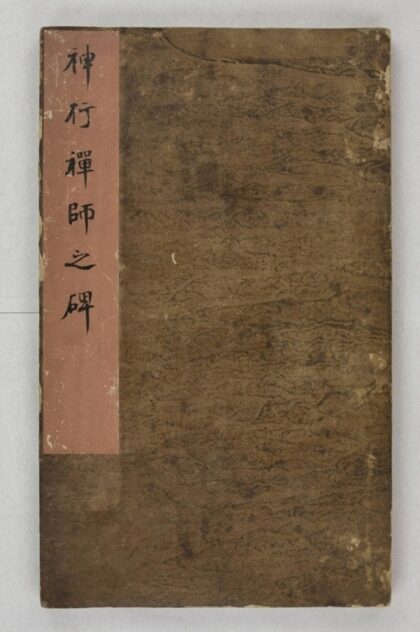 神行禪師之碑